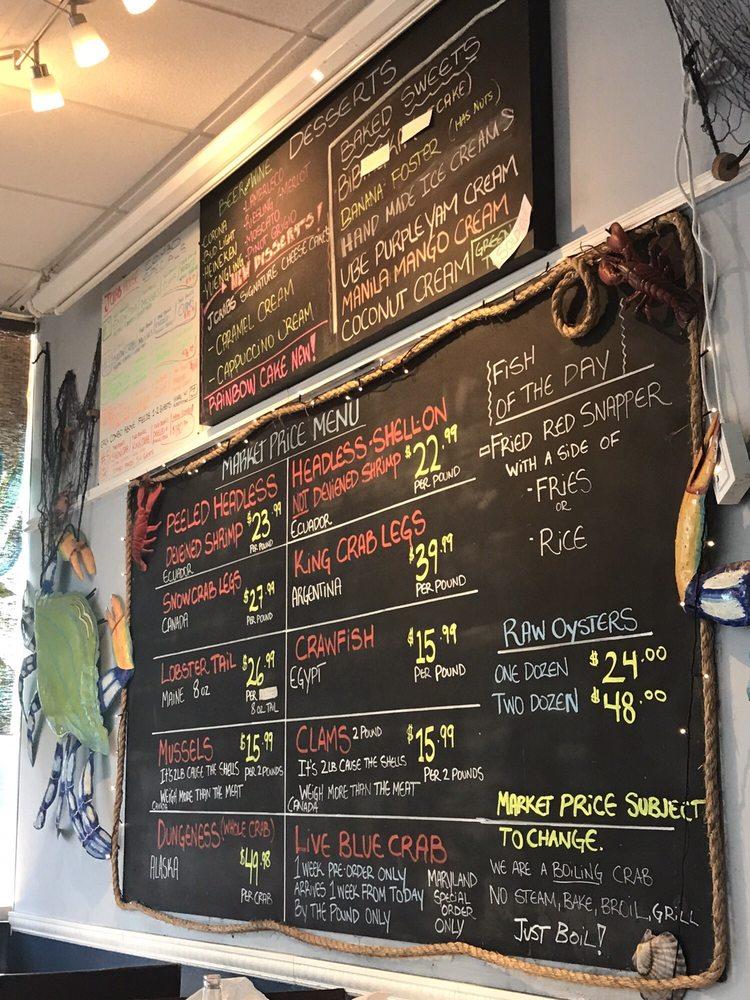 DESSERTS
BEER & WINE
CORONA
BUD LIGHT
HEINEKEN
YUENGLING
LAMBRUSCO
RIESLING MERLOT
MOSCATO
PINOT GRIGIO
NEW DESSERTS!
JCRABS SIGNATURE CHEESECAKES
- CARAMEL CREAM
- CAPPUCCINO CREAM
RAINBOW CAKE NEW!
BAKED SWEETS
CAKE)
BANANA FOSTER (HAS NUTS)
HAND MADE ICE CREAMS
UBE PURPLE YAM CREAM
MANILA MANGO CREAM
COCONUT CREAM
GREEN
MARKET PRICE MENU
PEELED HEADLESS
DEVIENED SHRIMP
$23.99
PER POUND
ECUADOR
HEADLESS-SHELL-ON
NOT DEVIENED SHRIMP
$22.99
PER POUND
ECUADOR
SNOWCRAB LEGS
CANADA
$27.99
PER POUND
KING CRAB LEGS
ARGENTINA
$39.99
PER POUND
LOBSTER TAIL
MAINE 8 OZ
$26.99
PER
8 OZ TAIL
CRAWFISH
EGYPT
$15.99
PER POUND
MUSSELS
$15.99
IT'S 2LB CAUSE THE SHELLS
PER 2 POUNDS
WEIGH MORE THAN THE MEAT
CANADA
CLAMS 2 POUND
$15.99
IT'S 2LB CAUSE THE SHELLS
PER 2 POUNDS
WEIGH MORE THAN THE MEAT
CANADA
DUNGENESS (WHOLE CRAB)
ALASKA
$49.98
PER CRAB
LIVE BLUE CRAB
1 WEEK PRE-ORDER ONLY
ARRIVES 1 WEEK FROM TODAY
BY THE POUND ONLY
MARYLAND
SPECIAL
ORDER
ONLY
FISH
OF THE DAY
=FRIED RED SNAPPER
WITH A SIDE OF
-FRIES
OR
-RICE
RAW OYSTERS
ONE DOZEN $24.00
TWO DOZEN $48.00
MARKET PRICE SUBJECT
TO CHANGE.
WE ARE A BOILING CRAB
NO STEAM, BAKE, BROIL, GRILL
JUST BOIL!